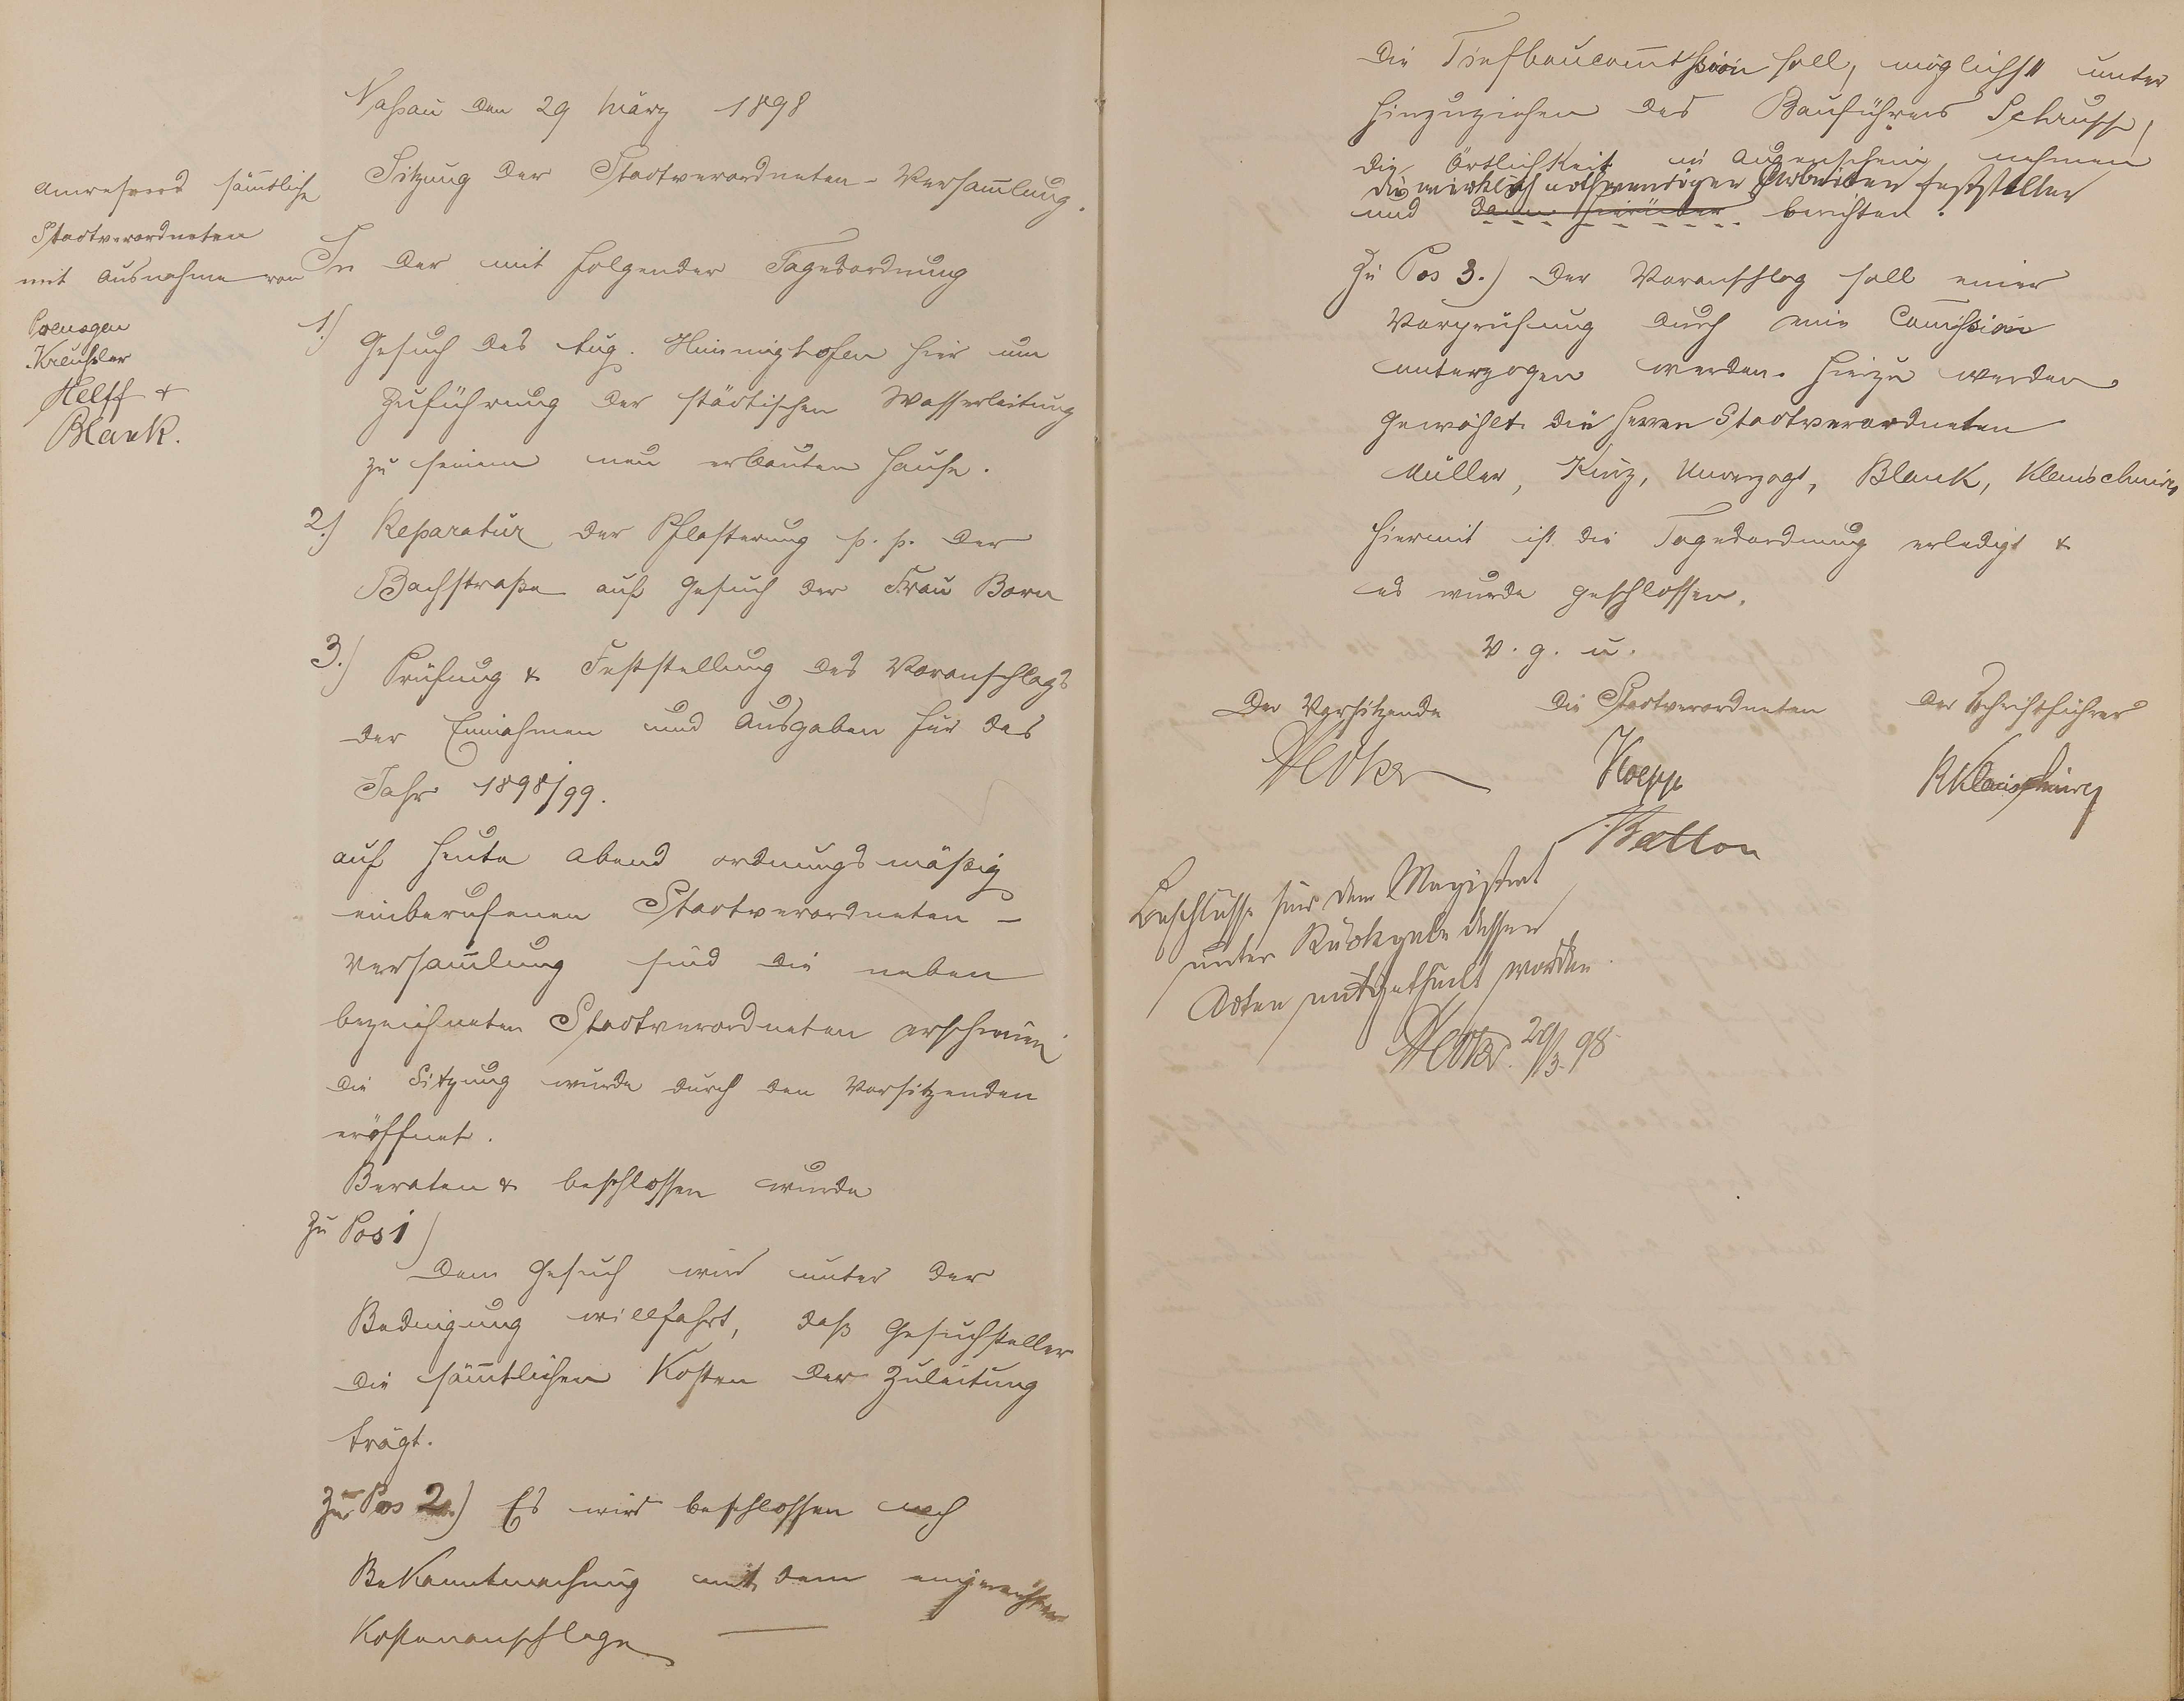 Nassau den 29 März 1898
Sitzung der Stadtverordneten-Versam̄lung.
Anwesend säm̄tliche
Stadtverordneten
mit Ausnahme von
Poensgen
Kreuhsler
Helff &
Blank.
In der mit folgender Tagesordnung
1.) Gesuch des Aug. Himmighofen hier um
Zuführung der städtischen Wasserleitung
zu seinem neu erbauten Hause.
2.) Reparatur der Pflasterung p. p. der
Bachstraße auf Gesuch der Frau Born
3.) Prüfung & Feststellung des Voranschlags
der Einnahmen und Ausgaben für das
Jahr 1898/99.
auf heute Abend ordnungsmäßig
einberufenen Stadtverordneten-
versam̄lung sind die neben
bezeichneten Stadtverordneten erschienen
Die Sitzung wurde durch den Vorsitzenden
eröffnet.
Beraten & beschlossen wurde
Zu Pos 1)
Dem Gesuch wird unter der
Bedingung willfahrt, daß Gesuchsteller
die säm̄tlichen Kosten der Zuleitung
trägt.
Zu Pos 2.) Es wird beschlossen nach
Bekanntmachung mit dem eingereichten
Kostenanschlage —
Die Tiefbaucom̄ission soll, möglichst unter
Hinzuziehen des Bauführers
die Örtlichkeit in Augenschein nehmen
die wirklich nothwendigen Arbeiten feststellen
und dann hierüber berichten.
Zu Pos 3.) Der Voranschlag soll einer
Vorprüfung durch eine Com̄ission
unterzogen werden. Hierzu werden
gewählt die Herren Stadtverordneten
Müller, Kurz, Unverzagt, Blank, Kleinschmidt
Hiermit ist die Tagesordnung erledigt &
es wurde geschlossen.
V. g. u.
Der Vorsitzende Die Stadtverordneten Der Schriftführer
Koepp
RKleinschmidt
Balzer
Beschlüsse sind dem Magistrat
unter Rückgabe dessen
Akten mitgetheilt worden.
29/3. 98.